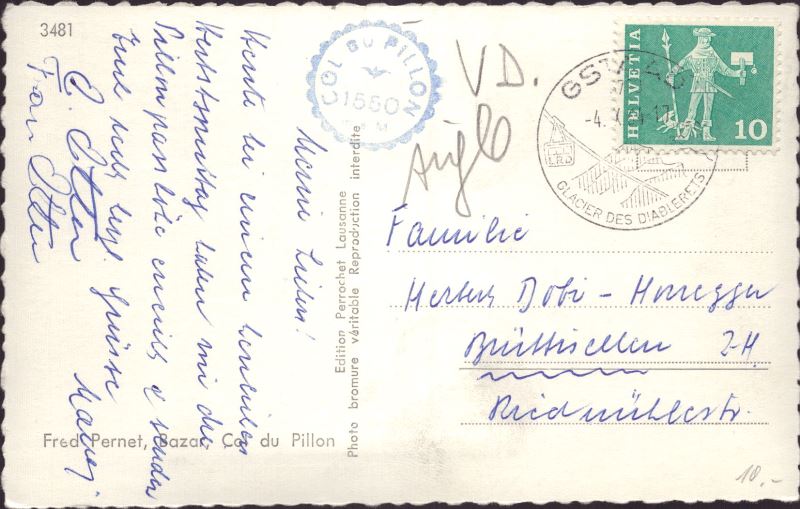 3481
COL DU PILLON
1550
M
VD.
Aigle
GSTAAD
-4.
GLACIER DES DIABLERETS
HELVETIA
10
Meine Lieben!
Heute bei einem herrlichen
Herbstsonntag haben wir den
Pillon pass
& senden
Euch recht herzl. Grüsse
Frau Otter
Edition Perrochet Lausanne
Photo bromure véritable Reproduction interdite
Familie
Herbert Dobi - Honegger
Brüttisellen ZH.
Riedmühlestr.
Fred Pernet, Bazar, Col du Pillon
10.-